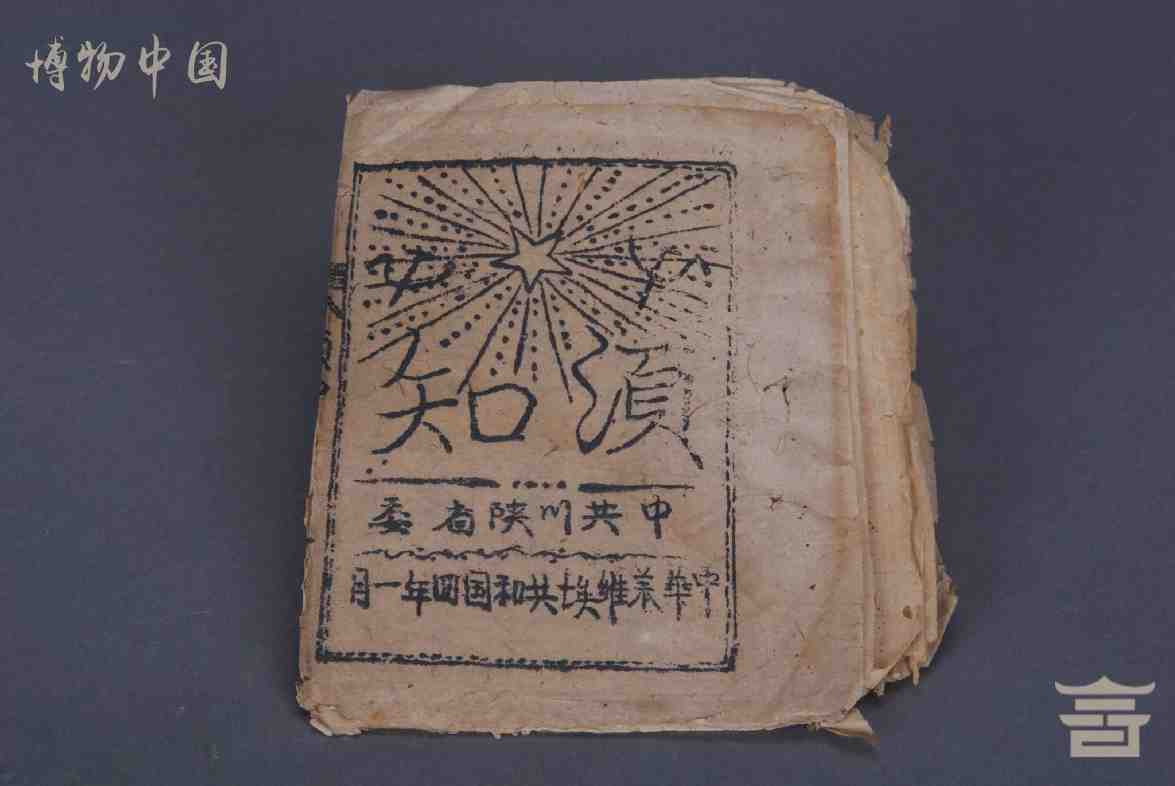 博物中国
須知
中共川陕省委
中華苏維埃共和国四年一月